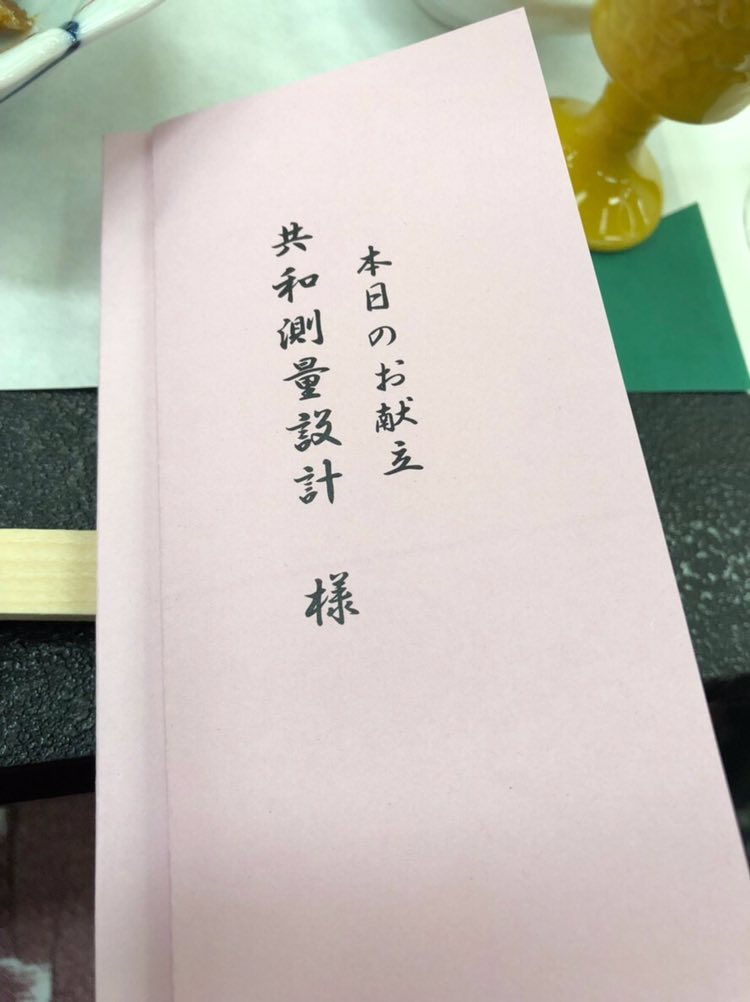 本日のお献立
共和測量設計 様